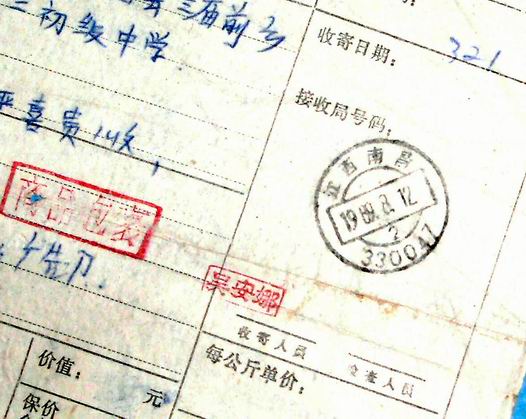 海前乡
初级中学
收寄日期：
321
接收局号码：
喜贵 收，
江西南昌
1989.8.12
2
330047
商品包装
吴安娜
收寄人员
检查人员
每公斤单价：
价值： 元
保价